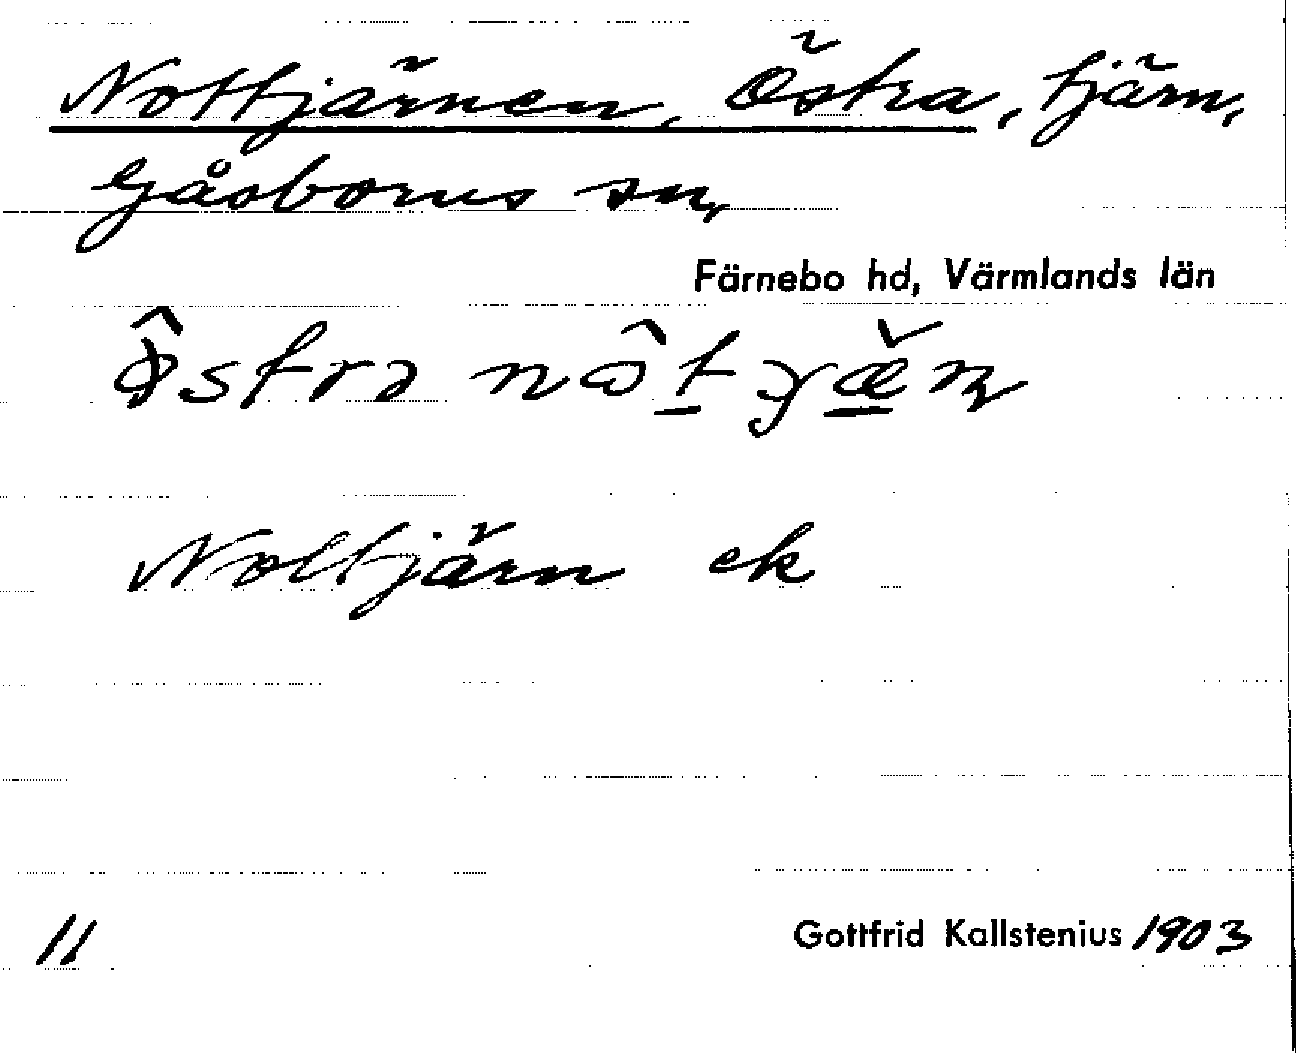 Nottjärnen, Östra, tjärn,
Gåsborns sn,
Färnebo hd, Värmlands län
Nottjärn ek
11 Gottfrid Kallstenius 1903